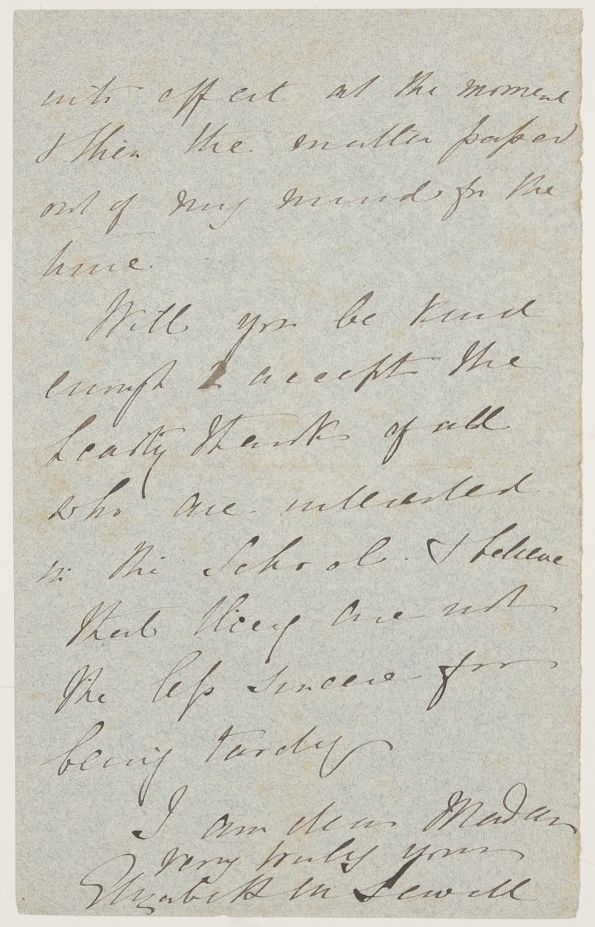 into effect at the moment
& then the matter passed
out of my mind for the
time.
Will you be kind
enough to accept the
hearty thanks of all
who are interested
in the School. & believe
that they are not
the less sincere for
being tardy
I am dear Madam
very truly yours
Elizabeth M Sewell